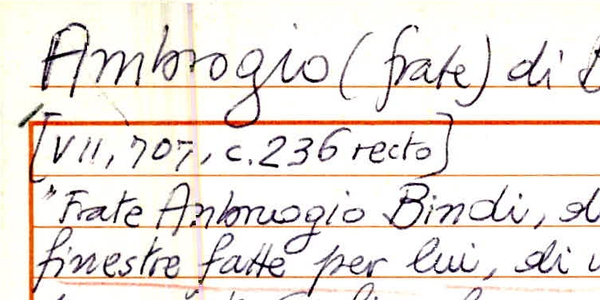 Ambrogio (frate) di
[VII, 707, c. 236 recto]
"Frate Ambruogio Bindi,
finestre fatte per lui, di